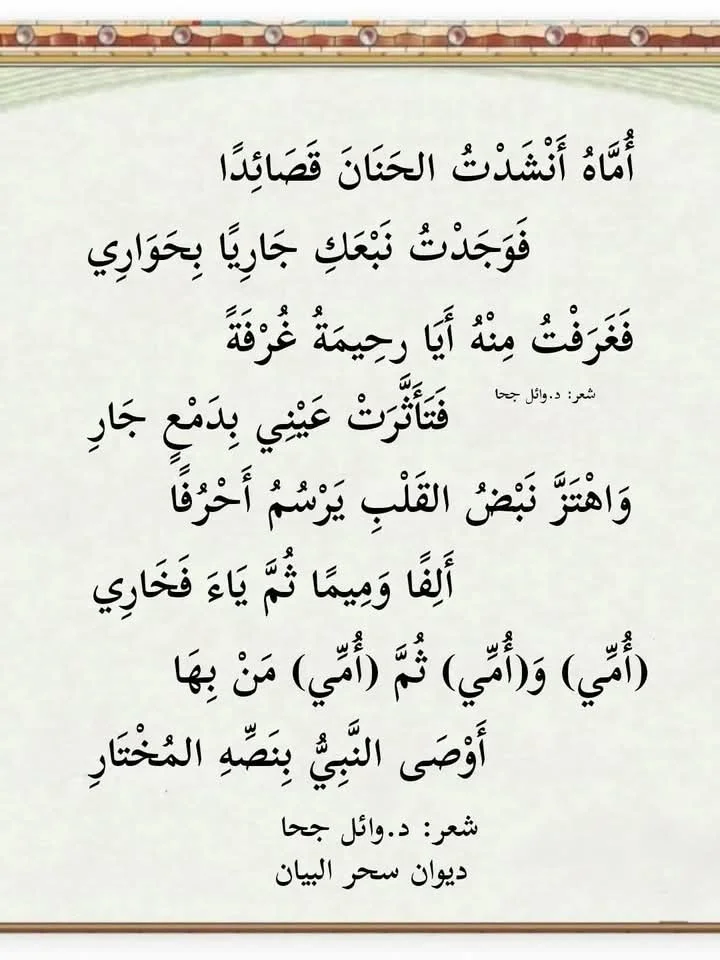 أُمَّاهُ أَنْشَدْتُ الحَنَانَ قَصَائِدًا
فَوَجَدْتُ نَبْعَكِ جَارِيًا بِحَوَارِي
فَغَرَفْتُ مِنْهُ أَيَا رحِيمَةُ غُرْفَةً
شعر: د.وائل جحا
فَتَأَثَّرَتْ عَيْنِي بِدَمْعٍ جَارِ
وَاهْتَزَّ نَبْضُ القَلْبِ يَرْسُمُ أَحْرُفًا
أَلِفًا وَمِيمًا ثُمَّ يَاءَ فَخَارِي
(أُمِّي) وَ(أُمِّي) ثُمَّ (أُمِّي) مَنْ بِهَا
أَوْصَى النَّبِيُّ بِنَصِّهِ المُخْتَارِ
شعر: د.وائل جحا
ديوان سحر البيان